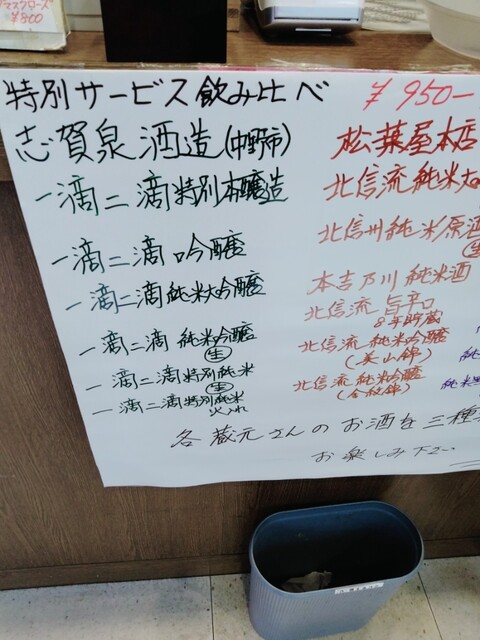 ¥800
特別サービス飲み比べ ¥950-
志賀泉酒造(中野市)
一滴二滴特別本醸造
一滴二滴吟醸
一滴二滴純米大吟醸
一滴二滴 純米吟醸
生
一滴二滴特別純米
生
一滴二滴特別純米
火入れ
松葉屋本店
北信流純米大
北信州純米原酒
生
本吉乃川純米酒
北信流 旨辛口
8年貯蔵
北信流純米吟醸
(美山錦)
北信流純米吟醸
(金紋錦)
各蔵元さんのお酒を三種
お楽しみ下さい